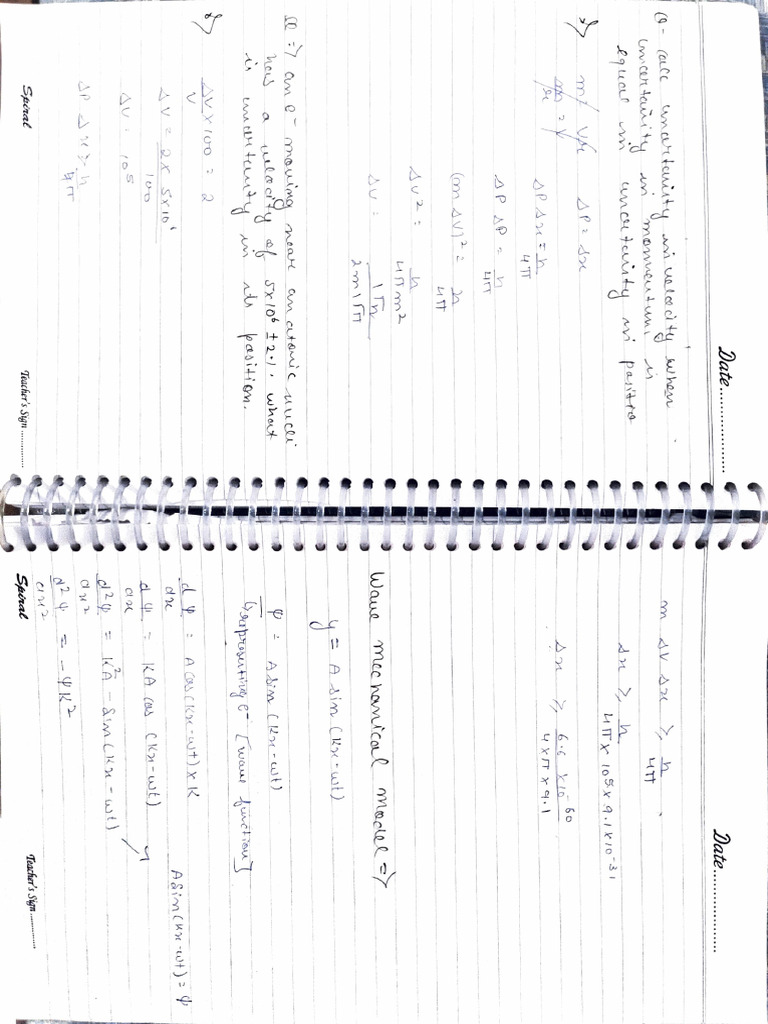 Date
Q- calc uncertainity in velocity when
uncertainity in momentum is
equal in uncertainity in position
m/ V/x ΔP = Δx
m/x = V
ΔP Δx = h/4π
ΔP ΔP = h/4π
(m ΔV)² = h/4π
ΔV² = h/4πm²
ΔV = 1√h/2m√π
Q ⇒ an e⁻ moving near an atomic nucli
has a velocity of 5x10⁶ ± 2%. what
is uncertainity in its position.
ΔV x 100/V = 2
ΔV = 2 x 5x10⁶/100
ΔV = 10⁵
ΔP Δx ≥ h/4π
Spiral
Teacher's Sign
Date
m ΔV Δx ≥ h/4π
Δx ≥ h/4π x 10⁵ x 9.1 x 10⁻³¹
Δx ≥ 6.6 x 10⁻⁶⁰/4 x π x 9.1
Wave mechanical model ⇒
y = A sin (kx - wt)
ψ = A sin (kx - wt)
↳ representing e⁻ [wave function]
dψ/dx = A cos (kx - wt) x K
A sin (kx - wt) = ψ
dψ/dx = KA cos (kx - wt)
d²ψ/dx² = K²A - sin (kx - wt)
d²ψ/dx² = -ψK²
Spiral
Teacher's Sign